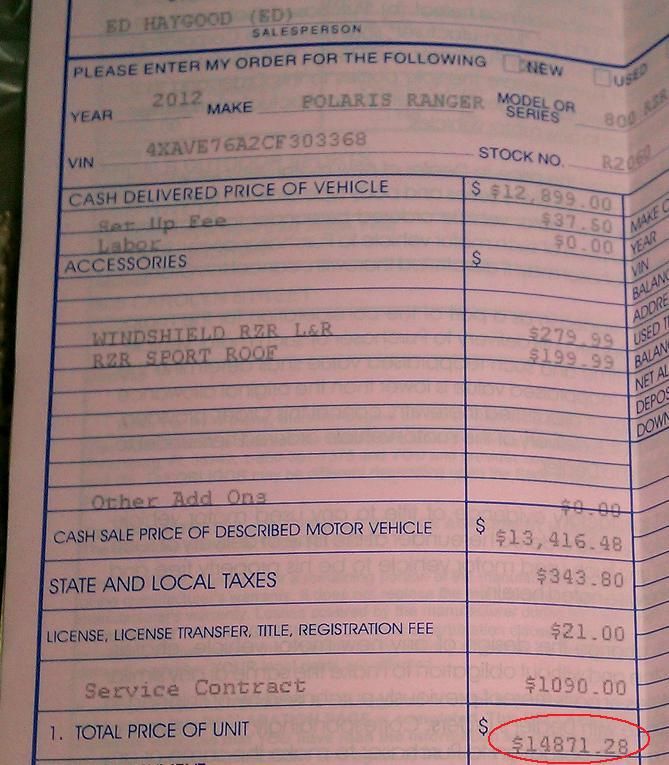 ED HAYGOOD (ED)
SALESPERSON
PLEASE ENTER MY ORDER FOR THE FOLLOWING NEW USED
YEAR 2012 MAKE POLARIS RANGER MODEL OR SERIES 800 RZR
VIN 4XAVE76A2CF303368 STOCK NO. R2060
CASH DELIVERED PRICE OF VEHICLE $ $12,899.00
Set Up Fee $37.50
Labor $0.00
ACCESSORIES $
WINDSHIELD RZR L&R $279.99
RZR SPORT ROOF $199.99
Other Add Ons $0.00
CASH SALE PRICE OF DESCRIBED MOTOR VEHICLE $ $13,416.48
STATE AND LOCAL TAXES $343.80
LICENSE, LICENSE TRANSFER, TITLE, REGISTRATION FEE $21.00
Service Contract $1090.00
1. TOTAL PRICE OF UNIT $ $14871.28
MAKE O
YEAR
VIN
BALAN
ADDRE
USED T
BALAN
NET AL
DEPOS
DOWN